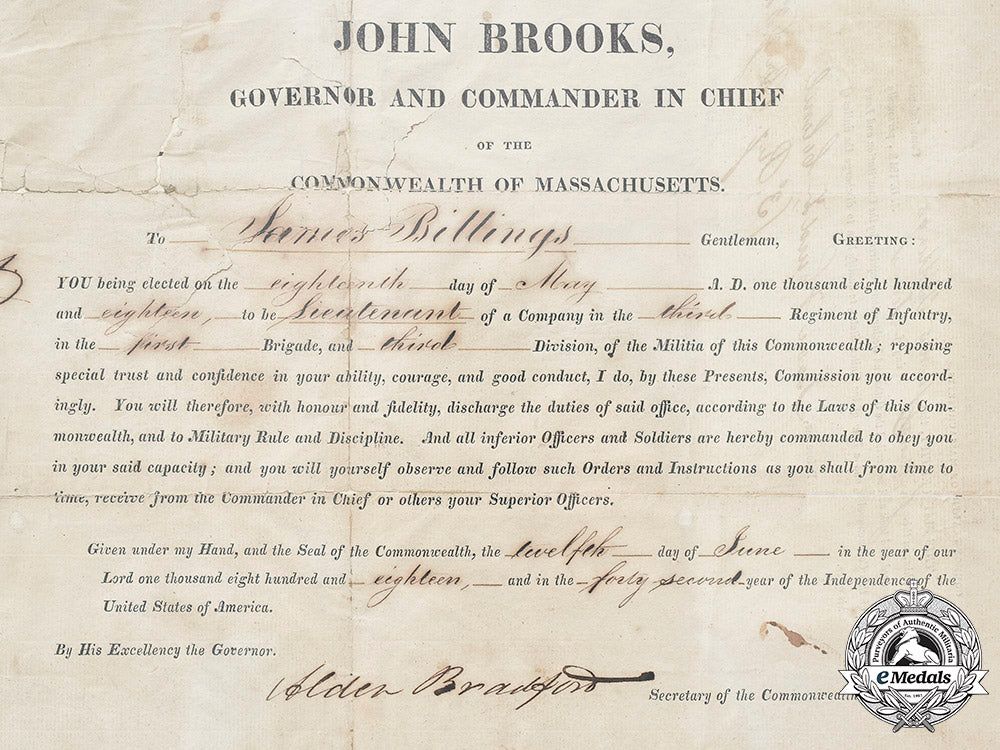 JOHN BROOKS,
GOVERNOR AND COMMANDER IN CHIEF
OF THE
COMMONWEALTH OF MASSACHUSETTS.
To James Billings Gentleman, GREETING:
YOU being elected on the eighteenth day of May A. D. one thousand eight hundred
and eighteen, to be Lieutenant of a Company in the third Regiment of Infantry,
in the first Brigade, and third Division, of the Militia of this Commonwealth; reposing
special trust and confidence in your ability, courage, and good conduct, I do, by these Presents, Commission you accord-
ingly. You will therefore, with honour and fidelity, discharge the duties of said office, according to the Laws of this Com-
monwealth, and to Military Rule and Discipline. And all inferior Officers and Soldiers are hereby commanded to obey you
in your said capacity; and you will yourself observe and follow such Orders and Instructions as you shall from time to
time, receive from the Commander in Chief or others your Superior Officers.
Given under my Hand, and the Seal of the Commonwealth, the twelfth day of June in the year of our
Lord one thousand eight hundred and eighteen, and in the forty second year of the Independence of the
United States of America.
By His Excellency the Governor.
Alden Bradford
Secretary of the Commonwealth
Purveyors of Authentic Militaria
eMedals